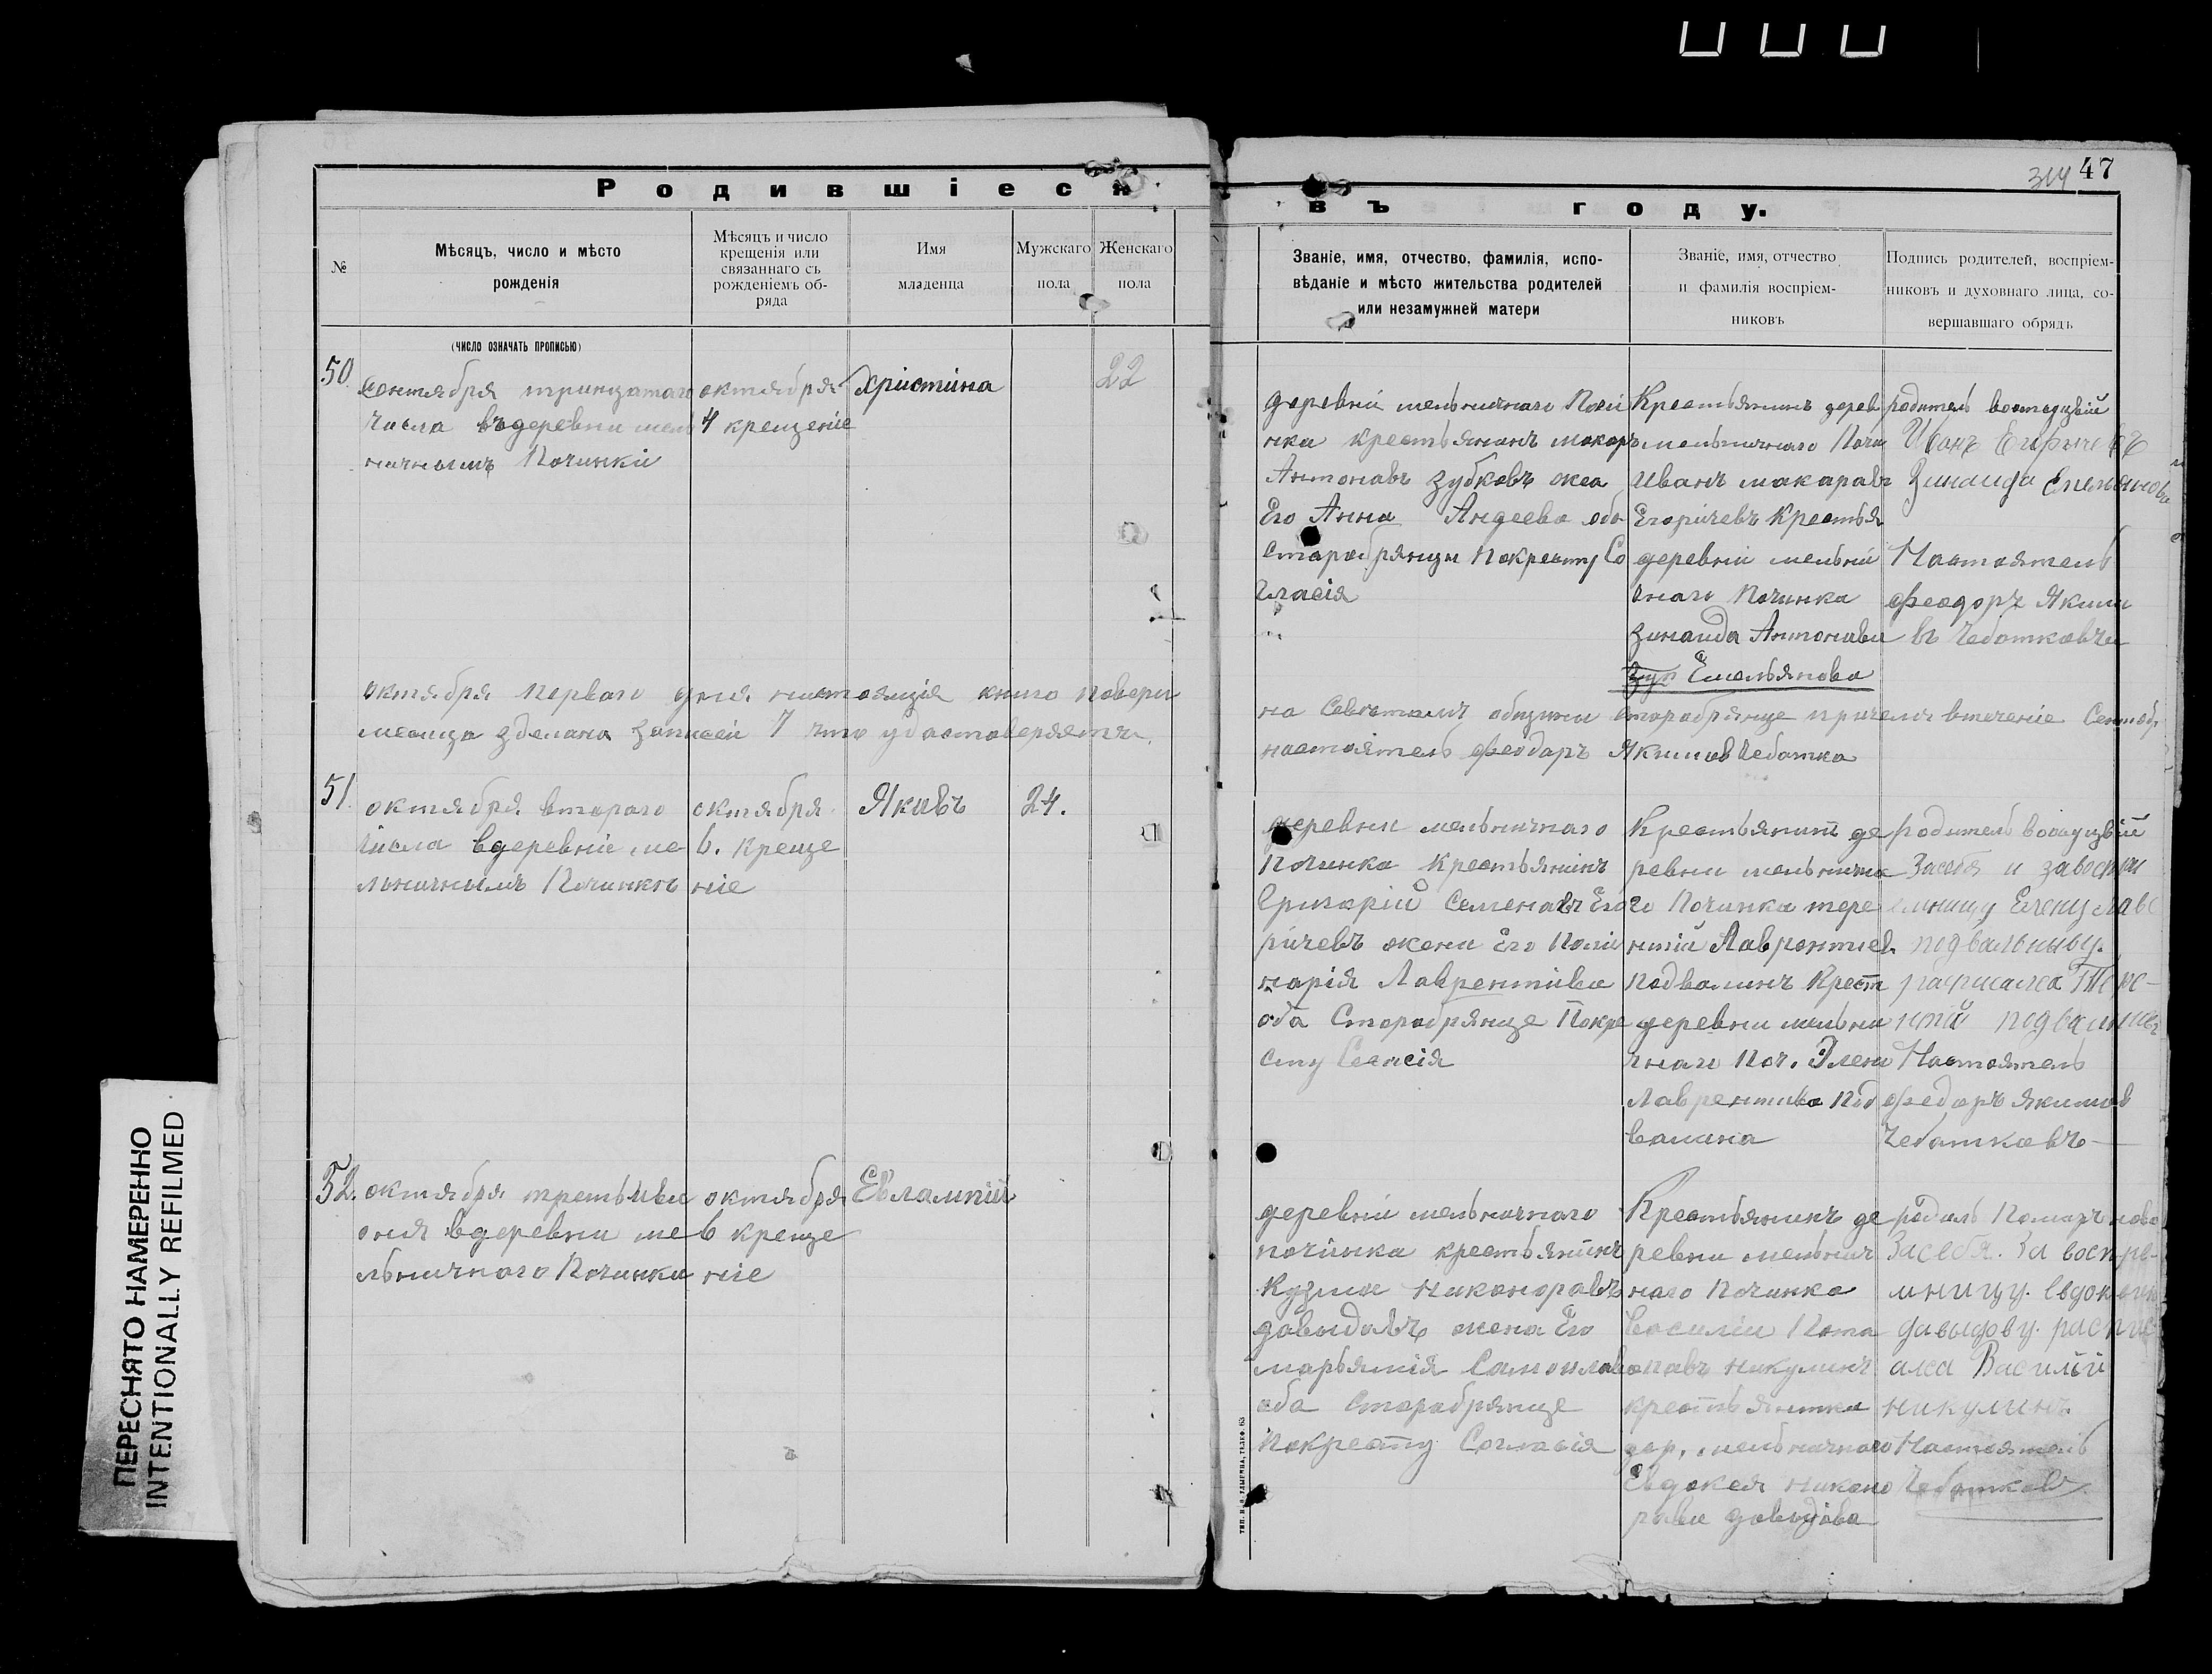 314 47
Родившіеся
въ году.
№
Мѣсяцъ, число и мѣсто
рожденія
Мѣсяцъ и число
крещенія или
связаннаго съ
рожденіемъ об-
ряда
Имя
младенца
Мужскаго
пола
Женскаго
пола
Званіе, имя, отчество, фамилія, испо-
вѣданіе и мѣсто жительства родителей
или незамужней матери
Званіе, имя, отчество
и фамилія воспріем-
никовъ
Подпись родителей, воспріем-
никовъ и духовнаго лица, со-
вершавшаго обрядъ
(число означать прописью)
50
сентября тринцатаго
числа въ деревни мел
ничнымъ Починки
октября
4 крещеніе
Христина
22
деревни мельничнаго Почи
нка крестьянинъ макаръ
Антонавъ Зубковъ жеа
Его Анна Андеева оба
старабрянцы Покресту Со
гласія
Крестьянинъ дерев
мельничнаго Почи
Иванъ макаравъ
Егоричевъ Крестья
деревни мельни
чнаго Починка
Зинаида Антонавна
Емельянова
родитель
Иванъ Егоричевъ
Зинаида Емельянова
Настоятель
Феодоръ Якими
въ Чебатковъ
октября Перваго дня настоящія книга повери
месица зделана записей 7 что удастоверяетъ
на Советамъ общины старабрянце причемъ втечение Сентяб
настоятель феодаръ Якимов Чебатка
51
октября втораго
числа вдеревніе ме
льничнымъ Починкъ
октября
6. Креще
ніе
Якавъ
24.
деревни мельничнаго
Починка Крестьянинъ
Григорій Семенавъ Его
ричевъ жена Его Поли
нарія Лаврентива
оба Старабрянце Покре
сту Сагласія
Крестьянинъ де
ревни мельнична
го Починка тере
нтій Лаврентиев
Подвалинъ Крест
деревни мельни
чнаго Поч. Элена
Лаврентива Под
валина
родитель
Засебя и завоспри
емницу Елену Лавр
подвальныву.
расписался Тере-
нтій подвалинъ
Настоятель
Федаръ Якимов
Чебатковъ
52.
октября третьива
дня вдеревни ме
льничнаго Починка
октября
6 креще
ніе
Евлампій
деревни мельничнаго
починка крестьянинъ
Кузма Никаноравъ
давыдавъ жена Его
марьямія Самоилова
оба Старабрянце
Покресту Сагласія
Крестьянинъ де
ревни мельнич
наго Починка
Василіи Пота
павъ Никулинъ
крестьянинка
дер. мельничнаго
Евдокея Никано
равна давыдова
Засебя. За воспре-
мницу. Евдокию
давыдову. распис
алса Василій
никулинъ
Настоятель
Чебатков
Тип. Н. В.
ПЕРЕСНЯТО НАМЕРЕННО
INTENTIONALLY REFILMED